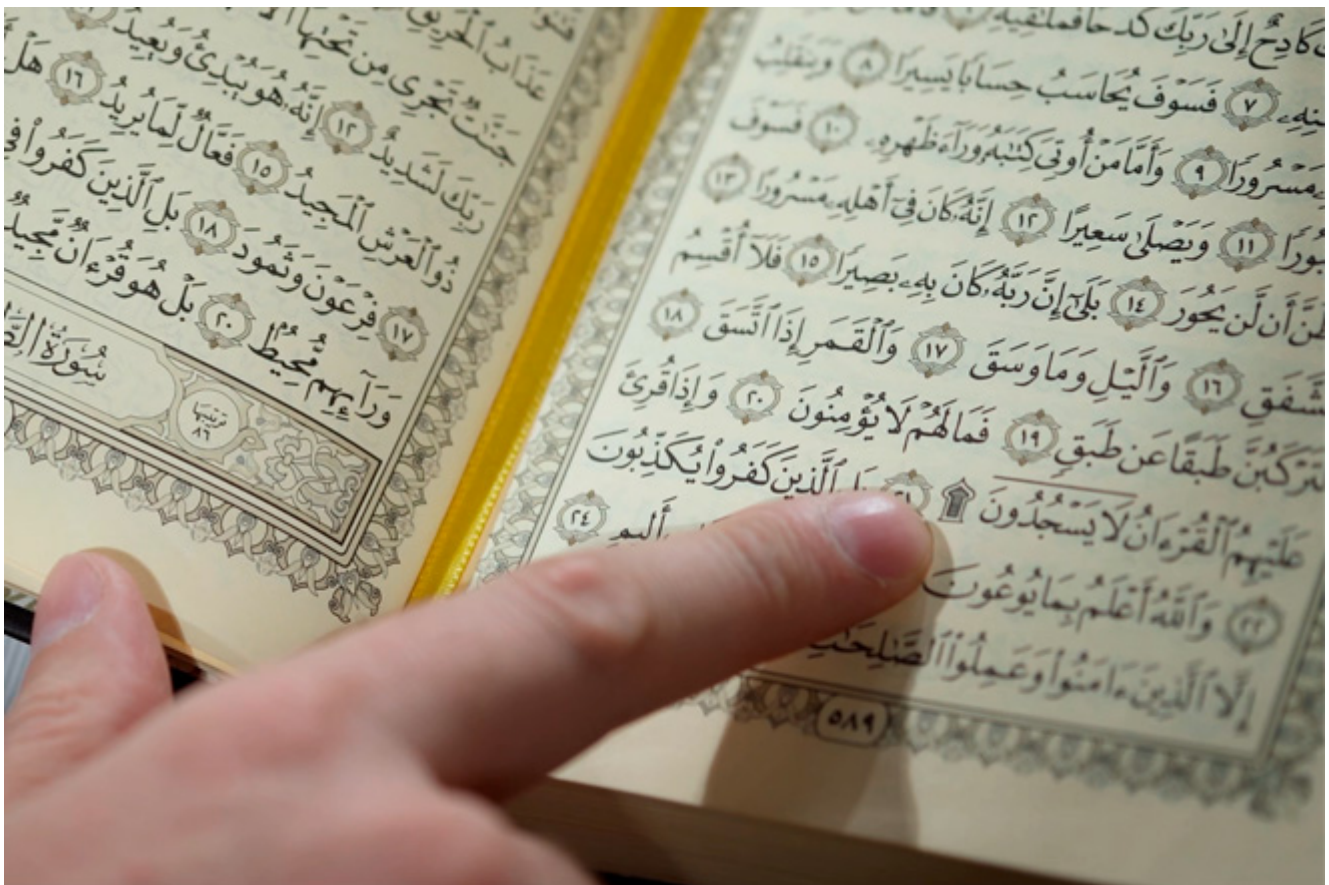 كَادِحٌ إِلَىٰ رَبِّكَ كَدْحًا فَمُلَٰقِيهِ
ينِهِۦ ٧ فَسَوْفَ يُحَاسَبُ حِسَابًا يَسِيرًا ٨ وَيَنقَلِبُ
مَسْرُورًا ٩ وَأَمَّا مَنْ أُوتِىَ كِتَٰبَهُۥ وَرَآءَ ظَهْرِهِۦ ١٠ فَسَوْفَ
بُورًا ١١ وَيَصْلَىٰ سَعِيرًا ١٢ إِنَّهُۥ كَانَ فِىٓ أَهْلِهِۦ مَسْرُورًا ١٣
ظَنَّ أَن لَّن يَحُورَ ١٤ بَلَىٰٓ إِنَّ رَبَّهُۥ كَانَ بِهِۦ بَصِيرًا ١٥ فَلَآ أُقْسِمُ
شَّفَقِ ١٦ وَٱلَّيْلِ وَمَا وَسَقَ ١٧ وَٱلْقَمَرِ إِذَا ٱتَّسَقَ ١٨
لَتَرْكَبُنَّ طَبَقًا عَن طَبَقٍ ١٩ فَمَا لَهُمْ لَا يُؤْمِنُونَ ٢٠ وَإِذَا قُرِئَ
عَلَيْهِمُ ٱلْقُرْءَانُ لَا يَسْجُدُونَ ۩ بَلِ ٱلَّذِينَ كَفَرُوا۟ يُكَذِّبُونَ
٢٢ وَٱللَّهُ أَعْلَمُ بِمَا يُوعُونَ أَلِيمٍ ٢٤
إِلَّا ٱلَّذِينَ ءَامَنُوا۟ وَعَمِلُوا۟ ٱلصَّٰلِحَٰتِ
٥٨٩
عَذَابُ ٱلْحَرِيقِ
جَنَّٰتٌ تَجْرِى مِن تَحْتِهَا
رَبِّكَ لَشَدِيدٌ ١٢ إِنَّهُۥ هُوَ يُبْدِئُ وَيُعِيدُ
ذُو ٱلْعَرْشِ ٱلْمَجِيدُ ١٥ فَعَّالٌ لِّمَا يُرِيدُ ١٦ هَلْ
١٧ فِرْعَوْنَ وَثَمُودَ ١٨ بَلِ ٱلَّذِينَ كَفَرُوا۟ فِى
وَرَآئِهِم مُّحِيطٌ ٢٠ بَلْ هُوَ قُرْءَانٌ مَّجِيدٌ
سُورَةُ الطَّ
ترتيبها
٨٦